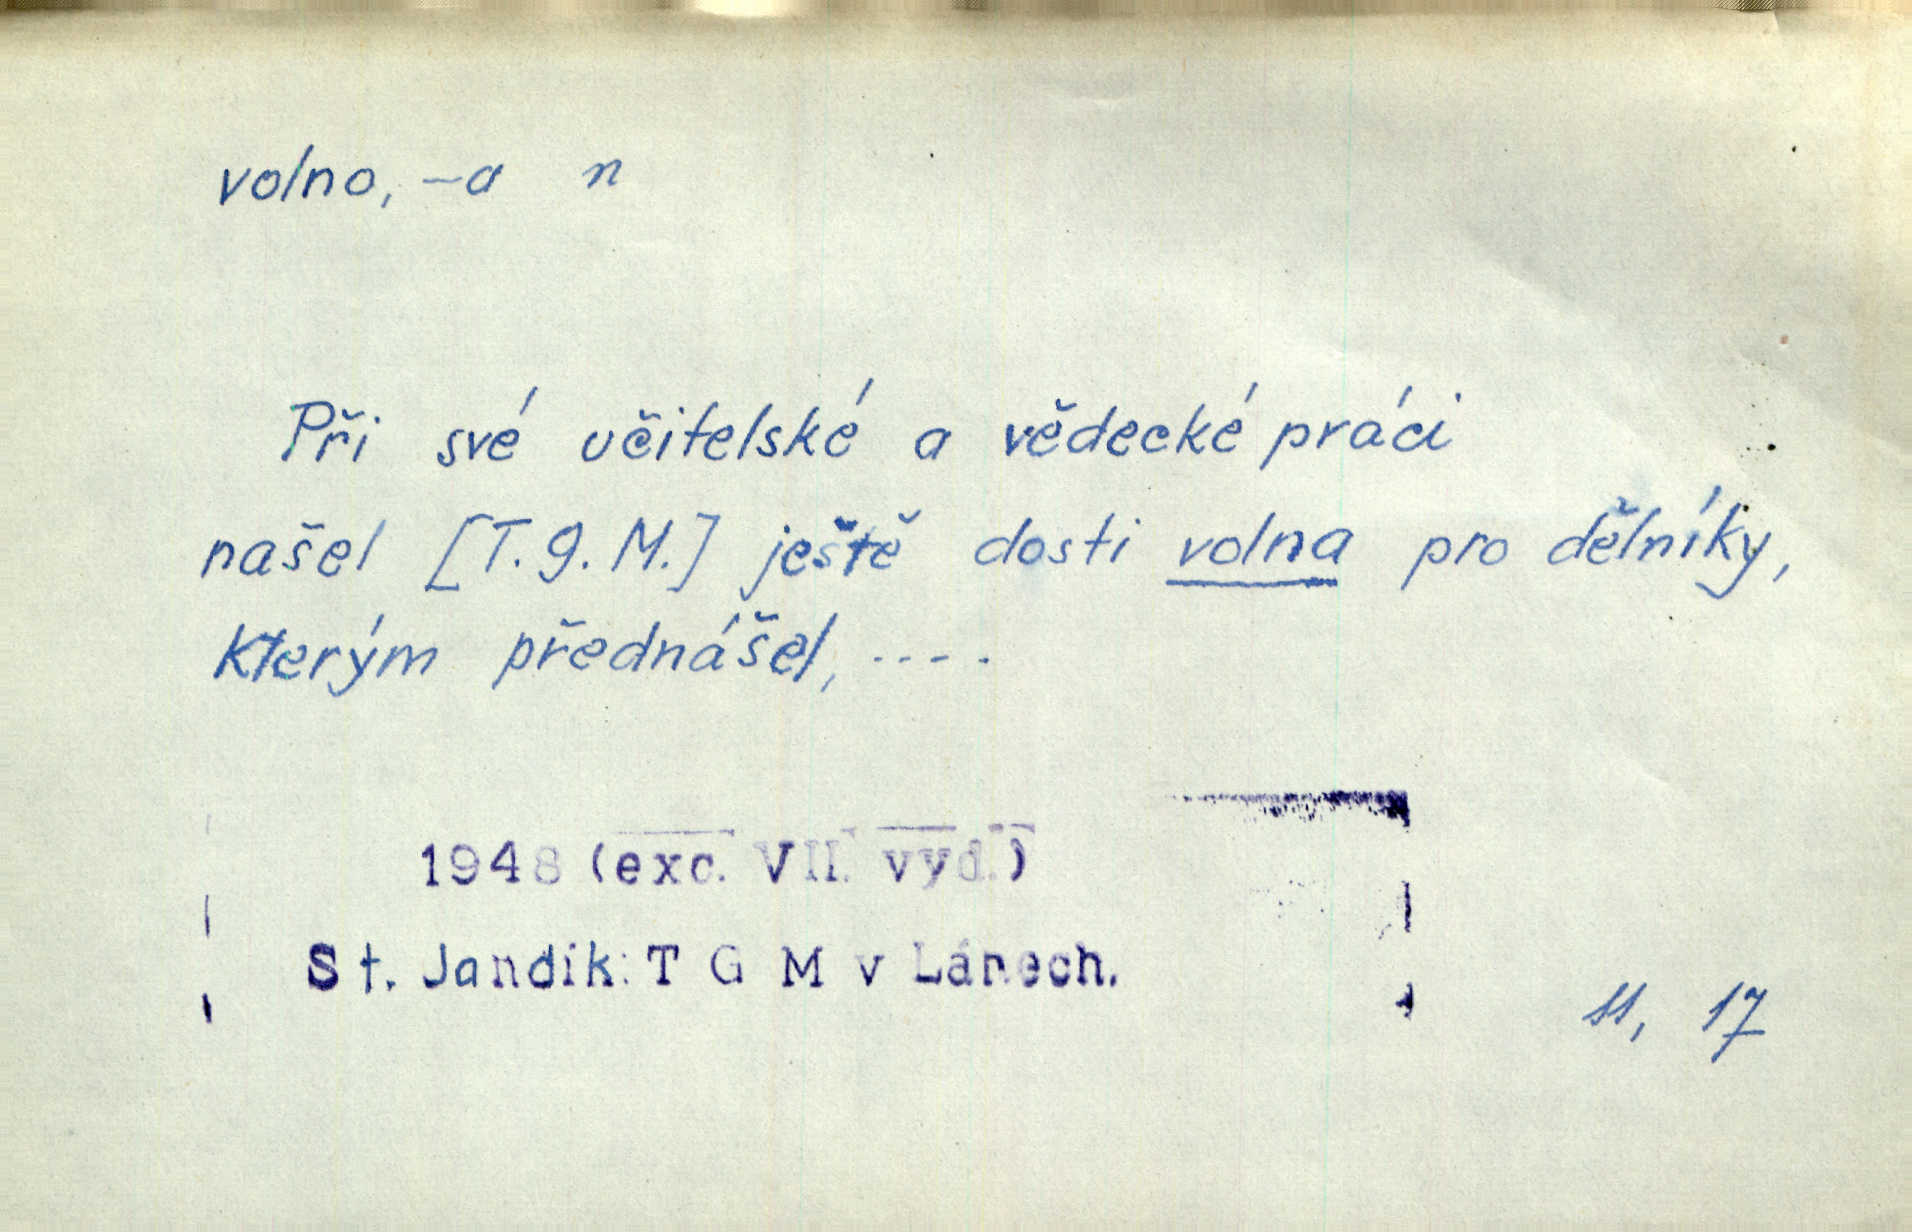 volno, -a n
Při své učitelské a vědecké práci
našel [T. G. M.] ještě dosti volna pro dělníky,
kterým přednášel, ....
1948 (exc. VII. vyd.)
St. Jandík: T G M v Lánech.
11, 17